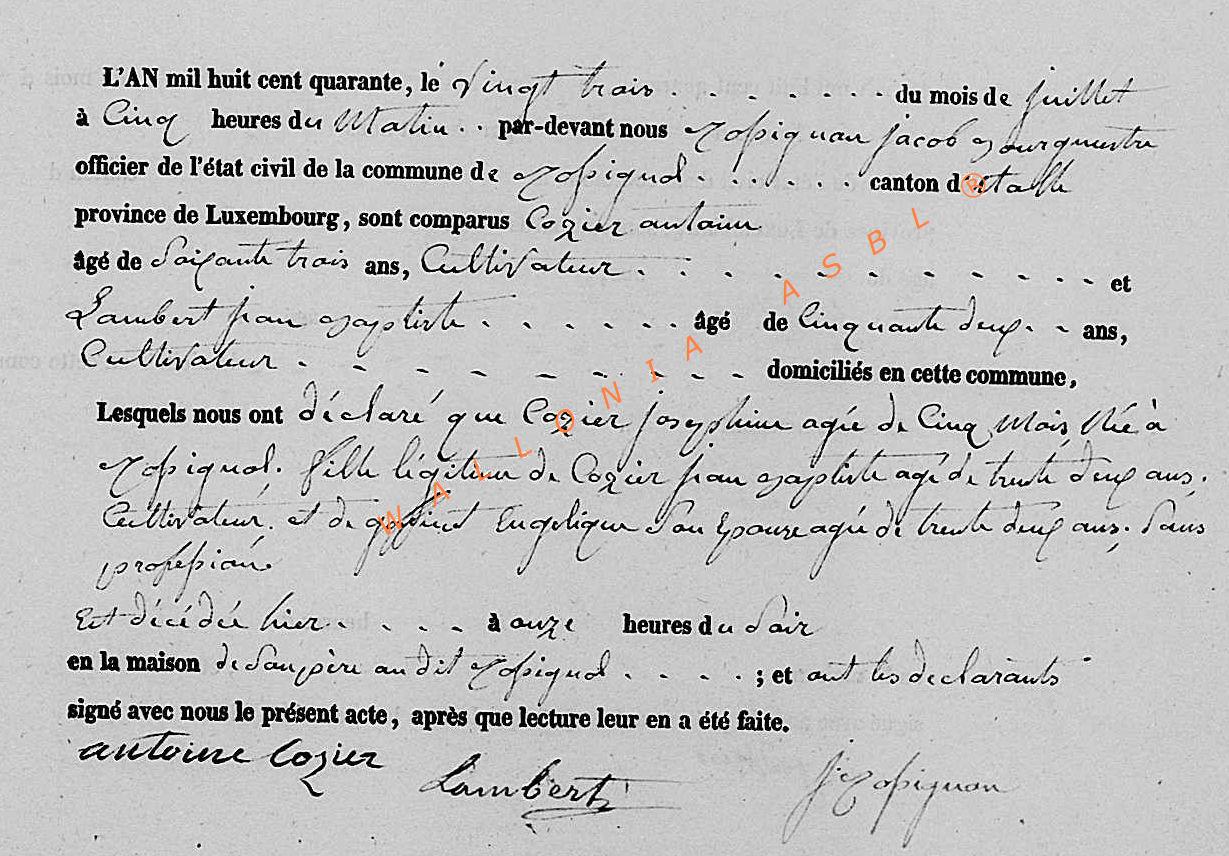 L'AN mil huit cent quarante, le Vingt trois . . . . . . du mois de juillet
à Cinq heures du Matin . . par-devant nous Rossignon jacob Bourguestre
officier de l'état civil de la commune de Rossignol . . . . . . canton d'Etalle
province de Luxembourg, sont comparus Cozier antoine
âgé de Soixante trois ans, Cultivateur . . - . - - - - - - - - et
Lambert jean Baptiste . . . . . . . âgé de Cinquante deux - - ans,
Cultivateur . - - - - - - - - domiciliés en cette commune,
Lesquels nous ont déclaré que Cozier josephine agée de Cinq Mois, Née à
Rossignol. fille légitime de Cozier jean Baptiste agé de trente deux ans.
Cultivateur. et de Engelique Son Epouze agée de trente deux ans. Sans
profession.
Est décédée hier . . . - à onze heures du Soir
en la maison de Son père au dit Rossignol . . . . ; et ont les declarants
signé avec nous le présent acte, après que lecture leur en a été faite.
antoine Cozier
Lambert
J. Rossignon
WALLONIA ASBL ®